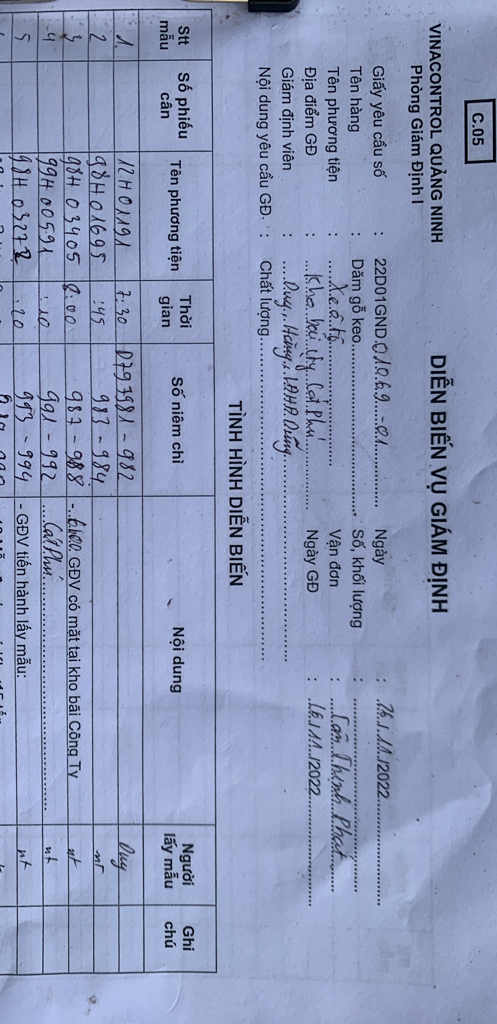 C.05
VINACONTROL QUẢNG NINH
Phòng Giám Định I
DIỄN BIẾN VỤ GIÁM ĐỊNH
Giấy yêu cầu số : 22D01GND01069-01 Ngày : 16/11/2022
Tên hàng : Dăm gỗ keo Số, khối lượng :
Tên phương tiện : Xe ô tô Vận đơn : Tân Thịnh Phát
Địa điểm GĐ : Kho bãi cty Cát Phú Ngày GĐ : 16/11/2022
Giám định viên : Duy, Hoàng, Dũng
Nội dung yêu cầu GĐ. : Chất lượng
TÌNH HÌNH DIỄN BIẾN
Stt mẫu Số phiếu cân Tên phương tiện Thời gian Số niêm chì Nội dung Người lấy mẫu Ghi chú
1. 12H01191 7:30 D797981 - 982 Duy
2 98H01695 :45 983 - 984 nt
3 98H03405 8:00 987 - 988 - GĐV có mặt tại kho bãi Công Ty nt
4 99H00591 :10 991 - 992 Cát Phú nt
5 98H03272 :20 993 - 994 - GĐV tiến hành lấy mẫu: nt